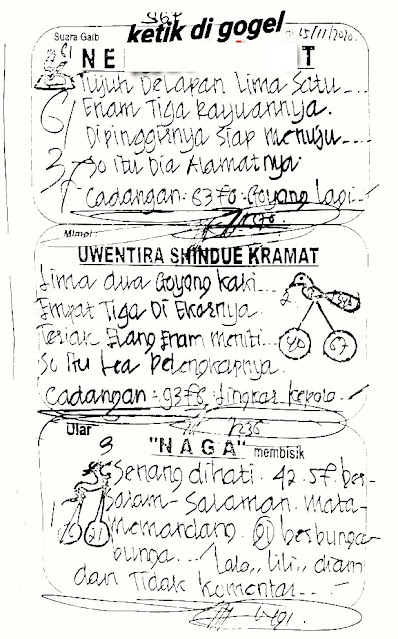 ketik di gogel
Suara Gaib
15/11/2020.
N E T
Tujuh Delapan Lima Satu....
Enam Tiga Rayuannya.
Dipinggirnya Siap Menuju....
So itu Dia Alamatnya.
Cadangan: 6370. Goyang Lagi
Mimpi
UWENTIRA SHINDUE KRAMAT
Lima dua Goyang kaki...
Empat Tiga Di Ekornya.
Teriak Elang Enam meniti...
So Itu Pelengkapnya.
40 67
Cadangan: 9378, Lingkar kepala
1236
Ular
"N A G A" membisik
3
Senang dihati. 42. 57. ber-
salam-salaman. Mata-
memandang. 21 berbunga-
21
bunga... Lala,, lili,, diam
dan Tidak Komentar...